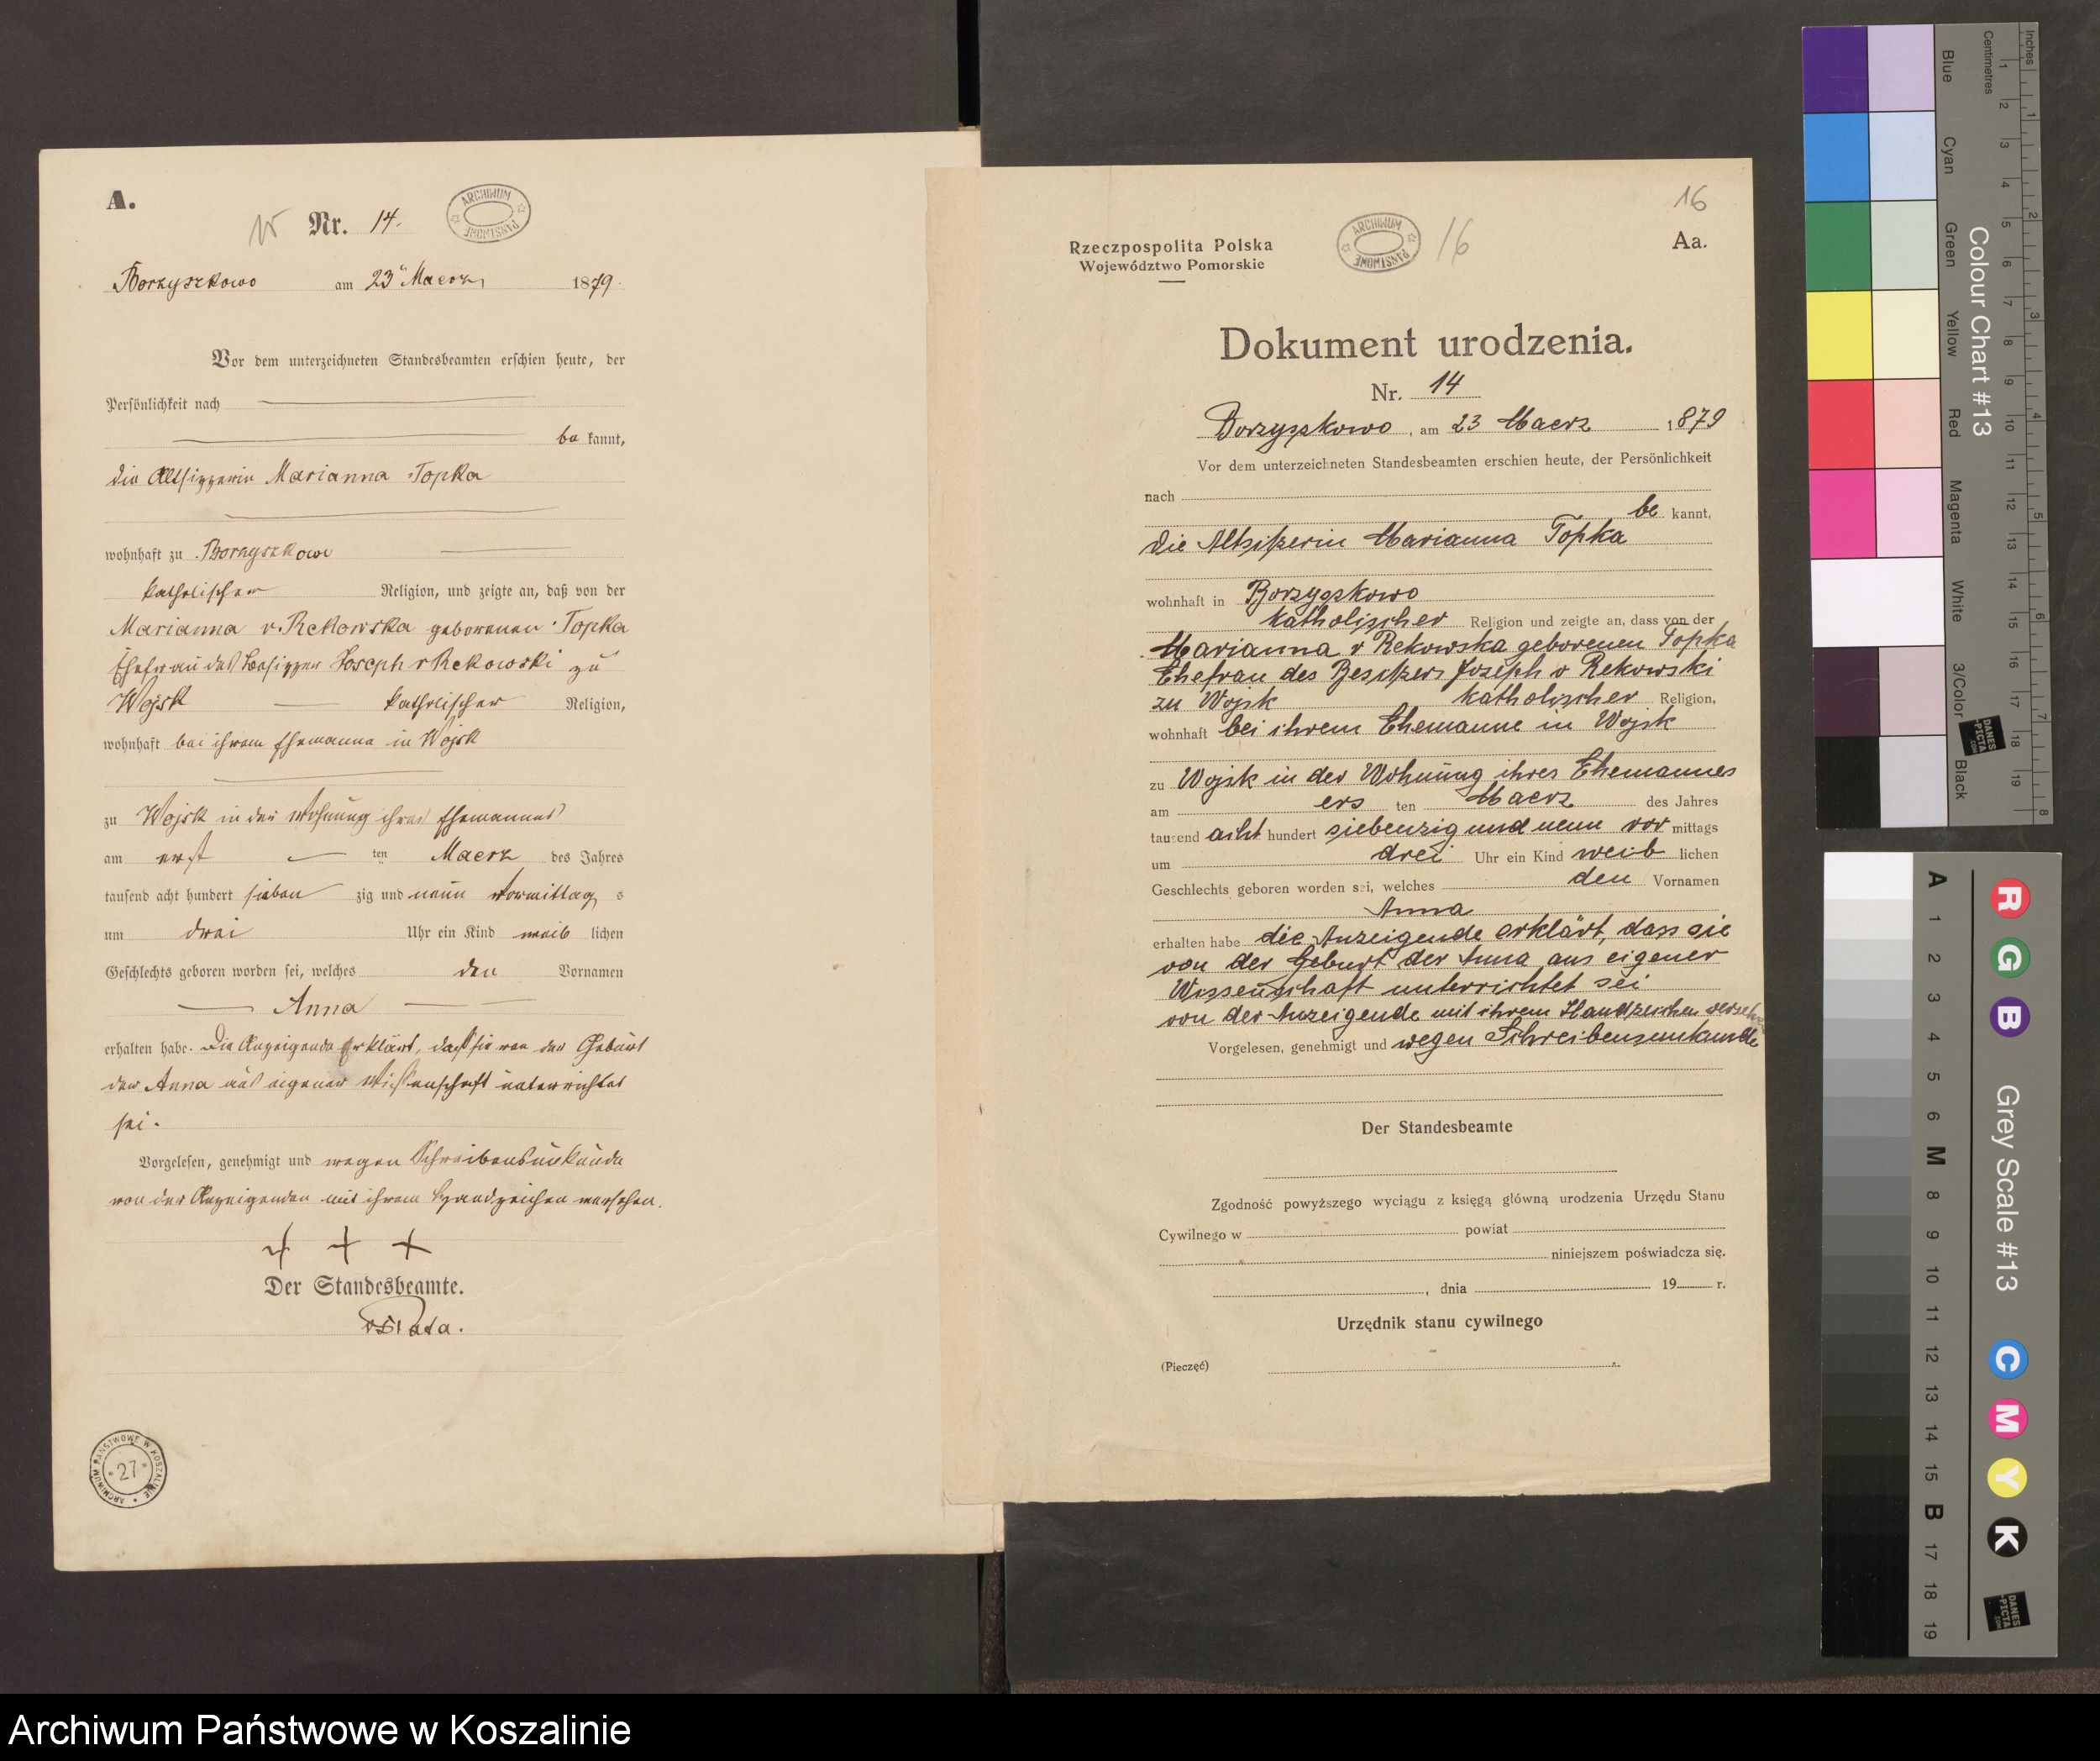 A.
Nr. 14.
ARCHIWUM PAŃSTWOWE
Borzyszkowo am 23 Maerz 1879.
Vor dem unterzeichneten Standesbeamten erschien heute, der
Persönlichkeit nach
be kannt,
die Altsitzerin Marianna Topka
wohnhaft zu Borzyszkowo
katholischer Religion, und zeigte an, daß von der
Marianna v. Rekowska geborenen Topka
Ehefrau des Besitzer Joseph v Rekowski zu
Wojsk katholischer Religion,
wohnhaft bei ihrem Ehemanne in Wojsk
zu Wojsk in der Wohnung ihres Ehemannes
am erst ten Maerz des Jahres
tausend acht hundert sieben zig und neun Vormittag s
um drei Uhr ein Kind weib lichen
Geschlechts geboren worden sei, welches den Vornamen
Anna
erhalten habe. Die Anzeigende erklärt, daß sie von der Geburt
der Anna aus eigener Wissenschaft unterrichtet
sei.
Vorgelesen, genehmigt und wegen Schreibensunkunde
von der Anzeigenden mit ihrem Handzeichen versehen.
+ + +
Der Standesbeamte.
ARCHIWUM PAŃSTWOWE W KOSZALINIE
* 27 *
16
Aa.
Rzeczpospolita Polska
Województwo Pomorskie
ARCHIWUM PAŃSTWOWE
16
Dokument urodzenia.
Nr. 14
Borzyszkowo, am 23 Maerz 1879
Vor dem unterzeichneten Standesbeamten erschien heute, der Persönlichkeit
nach
be kannt,
die Altsitzerin Marianna Topka
wohnhaft in Borzyszkowo
katholischer Religion und zeigte an, dass von der
Marianna v Rekowska geborenen Topka
Ehefrau des Besitzers Joseph v Rekowski
zu Wojsk katholischer Religion,
wohnhaft bei ihrem Ehemanne in Wojsk
zu Wojsk in der Wohnung ihres Ehemannes
am ers ten Maerz des Jahres
tausend acht hundert siebenzig und neun vor mittags
um drei Uhr ein Kind weib lichen
Geschlechts geboren worden sei, welches den Vornamen
Anna
erhalten habe die Anzeigende erklärt, dass sie
von der Geburt der Anna aus eigener
Wissenschaft unterrichtet sei
von der Anzeigende mit ihrem Handzeichen versehen
Vorgelesen, genehmigt und wegen Schreibensunkunde
Der Standesbeamte
Zgodność powyższego wyciągu z księgą główną urodzenia Urzędu Stanu
Cywilnego w powiat
niniejszem poświadcza się.
, dnia 19 r.
Urzędnik stanu cywilnego
(Pieczęć)
Inches
Centimetres
1 2 3 4 5 6 7 8 9 10 11 12 13 14 15 16 17 18 19
1 2 3 4 5 6 7 8
Colour Chart #13
Blue Cyan Green Yellow Red Magenta White 3/Color Black
DANES
-PICTA
.COM
A 1 2 3 4 5 6 M 8 9 10 11 12 13 14 15 B 17 18 19
R G B
Grey Scale #13
C M Y K
DANES
-PICTA
.COM
Archiwum Państwowe w Koszalinie